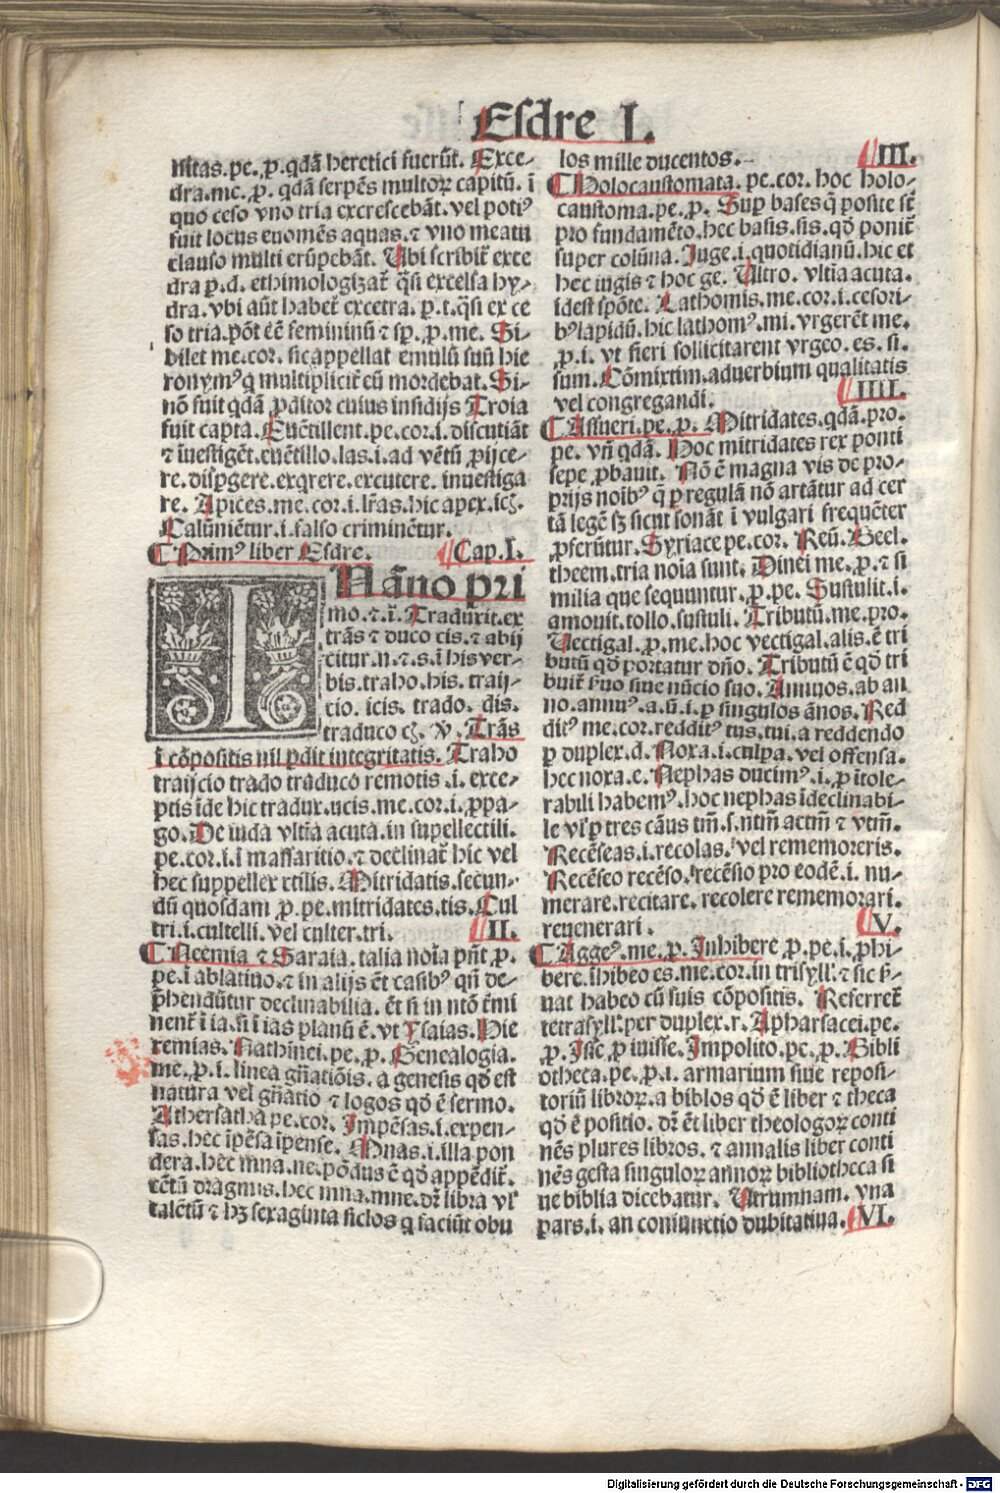 Esdre I.
nitas.pe.ꝓ.qdā heretici fuerūt. Exce-
dra.me.ꝓ.qdā serpēs multoꝝ capitū.ī
quo ceso vno tria excrescebāt.vel potiꝰ
fuit locus euomēs aquas.⁊ vno meatu
clauso multi erūpebāt. Ubi scribit̄ exce
dra ꝑ.d. ethimologizat̄ q̄si excelsa hy-
dra.vbi aūt habet̄ excetra.ꝑ.t.q̄si ex ce
so tria.pōt eē femininū ⁊ sp̄.ꝓ.me. Si-
bilet me.cor.sic appellat emulū suū hie
ronymꝰ q multiplicit̄ eū mordebat. Si-
nō fuit qdā ꝓditor cuius insidijs Troia
fuit capta. Euētillent.pe.cor.i.discutiāt
⁊ īuestigēt.euētillo.las.i.ad vētū ꝓijce-
re.disꝑgere.exqrere.excutere. inuestiga
re. Apices.me.cor.i.lr̄as.hic apex.icꝭ.
Calūniētur.i.falso criminētur.
Primꝰ liber Esdre. Cap.I.
IN āno pri
mo.⁊.ī. Traduxit.ex
trās ⁊ duco cis.⁊ abij
citur.n.⁊.s.ī his ver-
bis.traho.his.traij-
cio. icis. trado. dis.
traduco cꝭ. ꝟ. Trās
ī cōpositis nil ꝑdit integritatis. Traho
traijcio trado traduco remotis.i.exce-
ptis īde hic tradux.ucis.me.cor.i.ꝓpa-
go. De iuda vltīa acuta.in supellectili.
pe.cor.i.ī massaritio.⁊ declinat̄ hic vel
hec suppellex ctilis. Mitridatis.secun-
dū quosdam ꝓ.pe.mitridates.tis. Cul
tri.i.cultelli.vel culter.tri. II.
Neemia ⁊ Saraia.talia noīa pn̄t ꝓ.
pe.ī ablatiuo.⁊ in alijs ēt casibꝰ qn̄ de-
p̄hendūtur declinabilia. ēt si in ntō t̄mi
nent̄ ī ia.si ī ias planū ē.vt Ysaias. Hie
remias. Nathinei.pe.ꝓ. Genealogia.
me.ꝓ.i.linea gn̄atiōis.a genesis qd̄ est
natura vel gn̄atio ⁊ logos qd̄ ē sermo.
Athersatha pe.cor. Impēsas.i.expen-
sas.hec īpēsa ipense. Mnas.i.illa pon
dera.hec mna.ne.pōdus ē qd̄ appēdit̄.
cētū dragmis.hec mna.mne.dr̄ libra vl̓
talētū ⁊ hꝫ sexaginta siclos q faciūt obu
los mille ducentos. III.
Holocaustomata.pe.cor.hoc holo-
caustoma.pe.ꝓ. Suꝑ bases q̄ posite sūt
pro fundamēto.hec basis.sis.qd̄ ponit̄
super colūna. Iuge.i.quotidianū.hic et
hec iugis ⁊ hoc ge. Ultro. vltīa acuta.
idest spōte. Lathomis.me.cor.i.cesori-
bꝰ lapidū.hic lathomꝰ.mi.vrgerēt me.
ꝓ.i. vt fieri sollicitarent vrgeo.es.si.
sum. Cōmixtim.aduerbium qualitatis
vel congregandi. IIII.
Assueri.pe.ꝓ. Mitridates.qdā.pro.
pe. vn̄ qdā. Hoc mitridates rex ponti
sepe ꝓbauit. Nō ē magna vis de pro-
prijs noībꝰ q̄ ꝑ regulā nō artātur ad cer
tā legē sꝫ sicut sonāt ī vulgari frequēter
ꝓferūtur. Syriace pe.cor. Reū. Beel.
theem.tria noīa sunt. Dinei me.ꝓ.⁊ si
milia que sequuntur.ꝓ.pe. Sustulit.i.
amouit.tollo.sustuli. Tributū.me.pro.
Vectigal.ꝓ.me.hoc vectigal.alis.ē tri
butū qd̄ portatur dn̄o. Tributū ē qd̄ tri
buit̄ siue nūcio suo. Annuos.ab an
no.annuꝰ.a.ū.i.ꝑ singulos ānos. Red
ditꝰ me.cor.redditꝰ tus.tui.a reddendo
ꝑ duplex.d. Noxa.i.culpa.vel offensa.
hec noxa.e. Nephas ducimꝰ.i.ꝓ ītole-
rabili habemꝰ.hoc nephas īdeclinabi-
le vl̓ ꝑ tres cāus tm̄.s.ntm̄ actm̄ ⁊ vtm̄.
Recēseas.i.recolas. vel rememoreris.
Recēseo recēso. recēsio pro eodē.i. nu-
merare.recitare. recolere rememorari.
reuenerari. V.
Aggeꝰ.me.ꝓ. Inhibere ꝓ.pe.i.ꝓhi-
bere.īhibeo es.me.cor.in trisyll̓.⁊ sic
nat habeo cū suis cōpositis. Referret̄
tetrasyll̓.per duplex.r. Apharsacei.pe.
ꝓ. Isse ꝓ iuisse. Impolito.pe.ꝓ. Bibli
otheca.pe.ꝓ.i. armarium siue reposi-
toriū libroꝝ.a biblos qd̄ ē liber ⁊ theca
qd̄ ē positio. dr̄ ēt liber theologoꝝ conti
nēs plures libros. ⁊ annalis liber conti
nēs gesta singuloꝝ annoꝝ bibliotheca si
ue biblia dicebatur. Utrumnam. vna
pars.i. an coniunctio dubitatiua. VI.
Digitalisierung gefördert durch die Deutsche Forschungsgemeinschaft - DFG